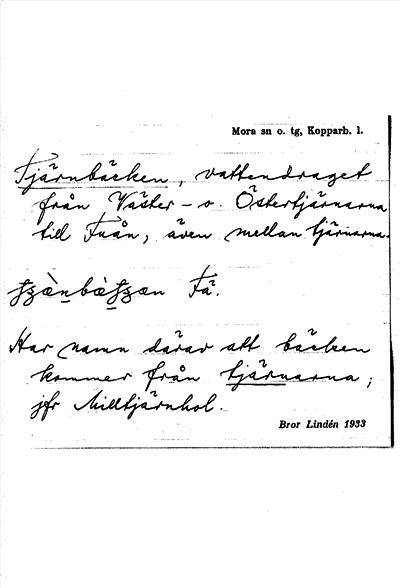 Mora sn o. tg, Kopparb. l.
Tjärnbäcken, vattendraget
från Väster- o. Östertjärnarna
till Fuån, även mellan tjärnarna.
Få.
Har namn därav att bäcken
kommer från tjärnarna;
jfr Milltjärnhol.
Bror Lindén 1933